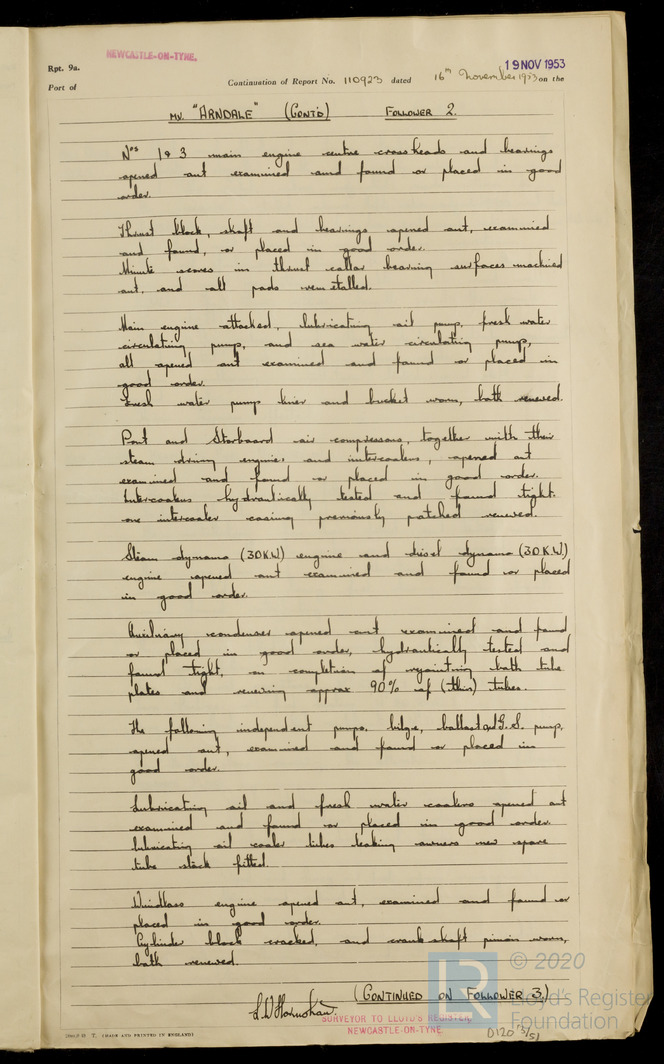 NEWCASTLE-ON-TYNE.
Rpt. 9a.
19 NOV 1953
Port of
Continuation of Report No. 110923 dated 16th November 1953 on the
MV. "ARNDALE" (CONT'D) FOLLOWER 2.
Nos 1 & 3 main engine centre crossheads and bearings
opened out examined and found or placed in good
order.
Thrust block, shaft and bearings opened out, examined
and found, or placed in good order.
Minute scores in thrust collar bearing surfaces machined
out, and all pads remetalled.
Main engine attached, lubricating oil pump, fresh water
circulating pump, and sea water circulating pump,
all opened out examined and found or placed in
good order.
Fresh water pump liner and bucket worn, both renewed.
Port and Starboard air compressors, together with their
steam driving engines and intercoolers, opened out
examined and found or placed in good order.
Intercoolers hydraulically tested and found tight.
one intercooler casing previously patched renewed.
Steam dynamo (30KW) engine and diesel dynamo (30KW)
engine opened out examined and found or placed
in good order.
Auxiliary condenser opened out examined and found
or placed in good order, hydraulically tested and
found tight, on completion of rejointing both tube
plates and renewing approx 90% of (thin) tubes.
The following independent pumps, bilge, ballast and G.S. pump,
opened out, examined and found or placed in
good order.
Lubricating oil and fresh water coolers opened out
examined and found or placed in good order.
Lubricating oil cooler tubes leaking owners new spare
tube stack fitted.
Windlass engine opened out, examined and found or
placed in good order.
Cylinder block cracked, and crank shaft pinion worn,
both renewed.
(CONTINUED ON FOLLOWER 3.)
SURVEYOR TO LLOYD'S REGISTER,
NEWCASTLE-ON-TYNE.
(MADE AND PRINTED IN ENGLAND)
LR
© 2020
Lloyd's Register
Foundation